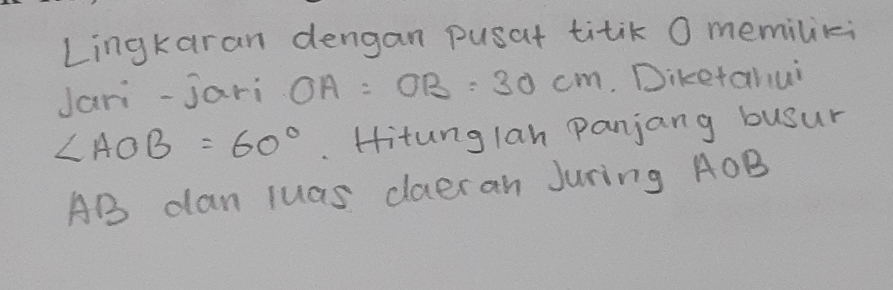 Lingkaran dengan pusat titik O memiliki
Jari - jari OA = OB = 30 cm. Diketahui
∠AOB = 60°. Hitunglah panjang busur
AB dan luas daerah Juring AOB